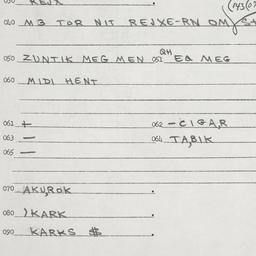 040 M3 TOR NIT REJXE-RN OM
050 ZUNTIK MEG MEN 051 QH EQ MEG
060 MIDI HENT
061 + 062 - CIGAR
063 - 064 TABIK
065 -
070 AKUROK
080 )KARK
090 KARKS $